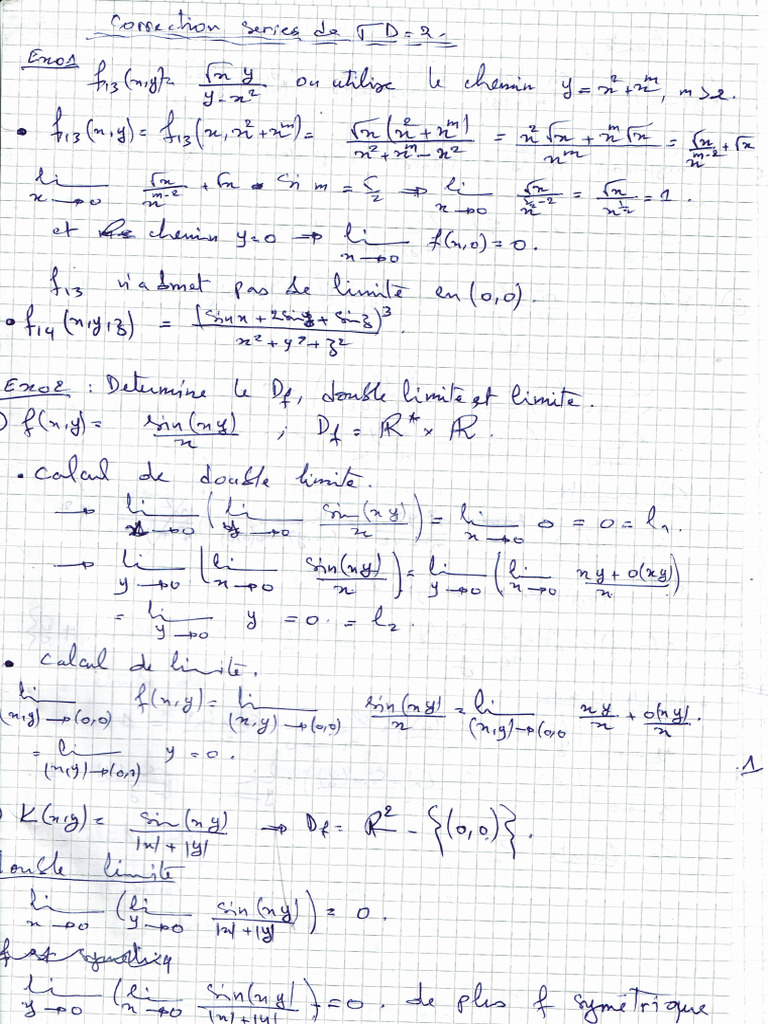 Correction series de TD=2.
Exo1 f₁₃(x,y)= √x y / (y-x²) on utilise le chemin y=x²+xᵐ, m>2.
• f₁₃(x,y)= f₁₃(x,x²+xᵐ)= √x(x²+xᵐ) / (x²+xᵐ-x²) = (x²√x+xᵐ√x) / xᵐ = √x / xᵐ⁻² + √x
lim x→0 √x / xᵐ⁻² + √x • Si m = 5/2 → lim x→0 √x / x^(5/2-2) = √x / x^(1/2) = 1.
et chemin y=0 → lim x→0 f(x,0)=0.
f₁₃ n'admet pas de limite en (0,0).
• f₁₄(x,y,z) = (sinx + 2siny + sinz)³ / (x²+y²+z²).
Exo2 : Determine le Df, double limite et limite.
) f(x,y)= sin(xy) / x ; Df = ℝ* × ℝ.
• Calcul de double limite.
→ lim x→0 (lim y→0 sin(xy) / x) = lim x→0 0 = 0 = l₁.
→ lim y→0 (lim x→0 sin(xy) / x) = lim y→0 (lim x→0 (xy+o(xy)) / x)
= lim y→0 y = 0. = l₂.
• Calcul de limite.
lim (x,y)→(0,0) f(x,y)= lim (x,y)→(0,0) sin(xy) / x = lim (x,y)→(0,0 xy / x + o(xy) / x.
= lim (x,y)→(0,0) y = 0.
.1
) K(x,y)= sin(xy) / (|x|+|y|) → Df = ℝ² - {(0,0)}.
double limite
lim x→0 (lim y→0 sin(xy) / (|x|+|y|)) = 0.
lim y→0 (lim x→0 sin(xy) / (|x|+|y|)) = 0. de plus f symétrique